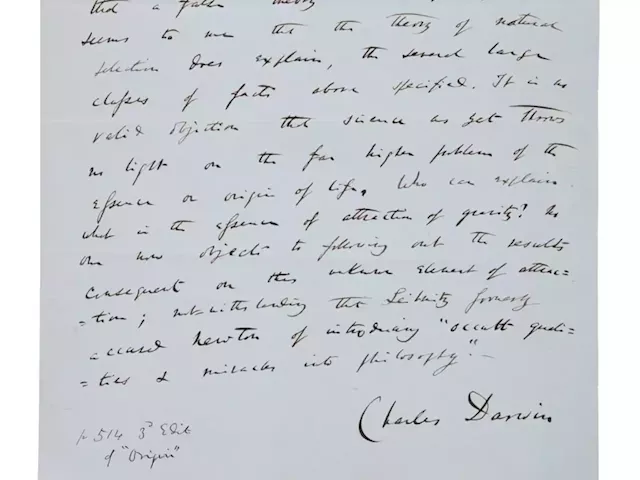 that a false theory
seems to me that the theory of natural
selection does explain, the several large
classes of facts above specified. It is no
valid objection that science as yet throws
no light on the far higher problem of the
essence or origin of life. Who can explain
what is the essence of attraction of gravity? No
one now objects to following out the results
consequent on this unknown element of attrac=
=tion; not-withstanding that Leibnitz formerly
accused Newton of introducing "occult quali=
=ties & miracles into philosophy".—
Charles Darwin
p 514 3d Edit
of "Origin"